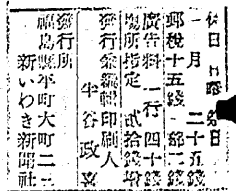 休日日曜祭日
一月 二十五錢
郵稅十五錢 一部二錢
廣告料一行四十錢
塲所指定 貳拾錢增
發行兼編輯印刷人
半谷政
發行所
福島縣平町大町二三
新いわき新聞社